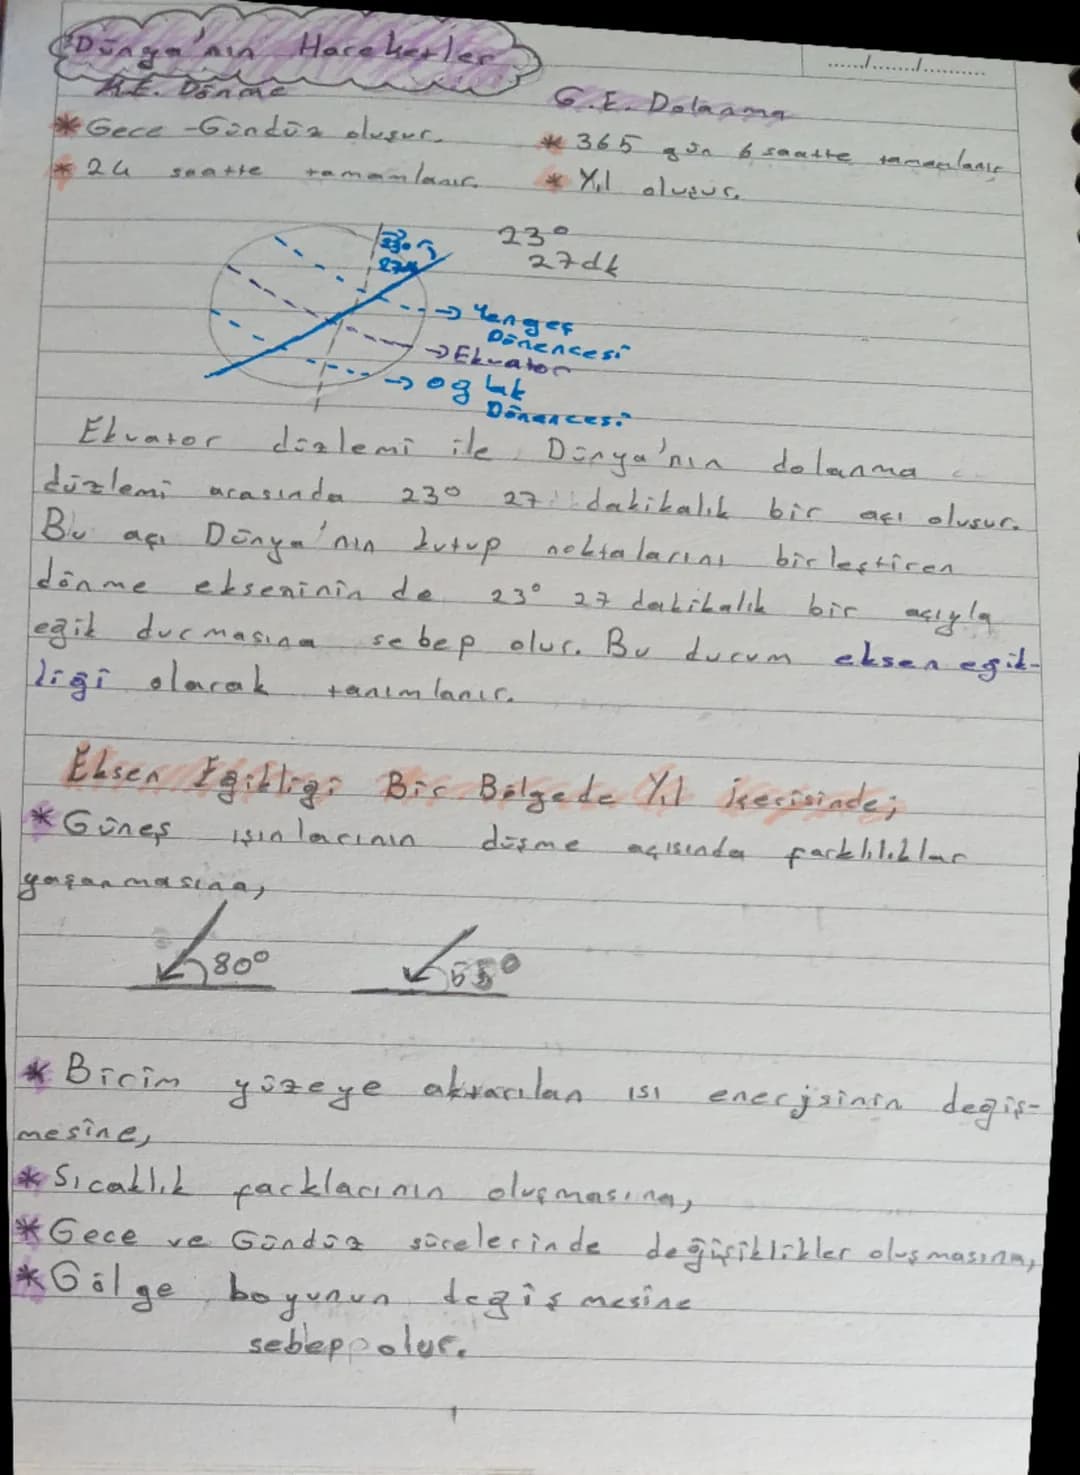 Dünya'nın Hareketler
K.E. Dönme
G.E. Dolanma
* Gece - Gündüz oluşur.
* 365 gün 6 saatte tamamlanır
* 24 saatte tamamlanır.
* Yıl oluşur.
23°
27dk
23°
27dk
→ Yengeç
Dönencesi
→ Ekvator
→ Oğlak
Dönencesi
Ekvator düzlemi ile Dünya'nın dolanma
düzlemi arasında 23° 27 dakikalık bir açı oluşur.
Bu açı Dünya'nın kutup noktalarını birleştiren
dönme ekseninin de 23° 27 dakikalık bir açıyla
eğik durmasına sebep olur. Bu durum eksen eğik-
liği olarak tanımlanır.
Eksen Eğikliği Bir Bölgede Yıl içerisinde;
* Güneş ışınlarının düşme açısında farklılıklar
yaşanmasına,
80°
55°
* Birim yüzeye aktarılan ısı enerjsinin değiş-
mesine,
* Sıcaklık farklarının oluşmasına,
* Gece ve Gündüz sürelerinde değişiklikler oluşmasına,
* Gölge boyunun değişmesine
sebep olur.